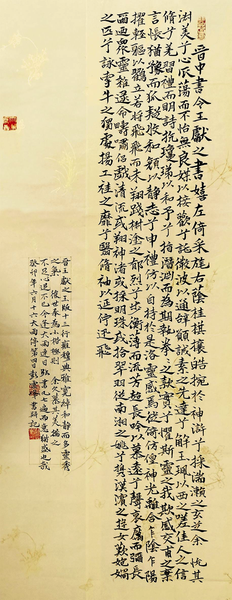 晋中書令王獻之書嬉左倚采旄右蔭桂旗攘皓捥於神滸兮採湍瀨之玄芝余悦其
淑美兮心振蕩而不怡無良媒以接歡兮託微波以通辭願誠素之先達兮解玉珮以而之嗟佳人之信
脩兮羌習禮而明詩抗瓊珶以和予兮指潛淵而為期執拳之款實兮懼斯靈之我欺感交甫之棄
言悵猶豫而狐疑收和顏以靜志兮申禮仿以自持於是洛靈感焉徙倚仿偟神光離合乍陰乍陽
擢輕軀以鶴立若將飛而未翔踐椒塗之郁烈兮步蘅薄而流芳超長吟以慕遠兮聲哀厲而彌長
爾迺衆靈雜遝命疇嘯侶或戲清流或翔神渚或採明珠或拾翠羽從南湘之姚兮攜漢濱之遊女歎匏媧
之匹兮詠牽牛之獨處揚袿之靡兮翳脩袖以延佇迅飛
晉王獻之玉版十三行嚴穩典雅寬綽和靜而多靈秀
之氣後世奉為楷極則
不足心追不已今逢大雨連日
癸卯年六月十六大雨停第四日